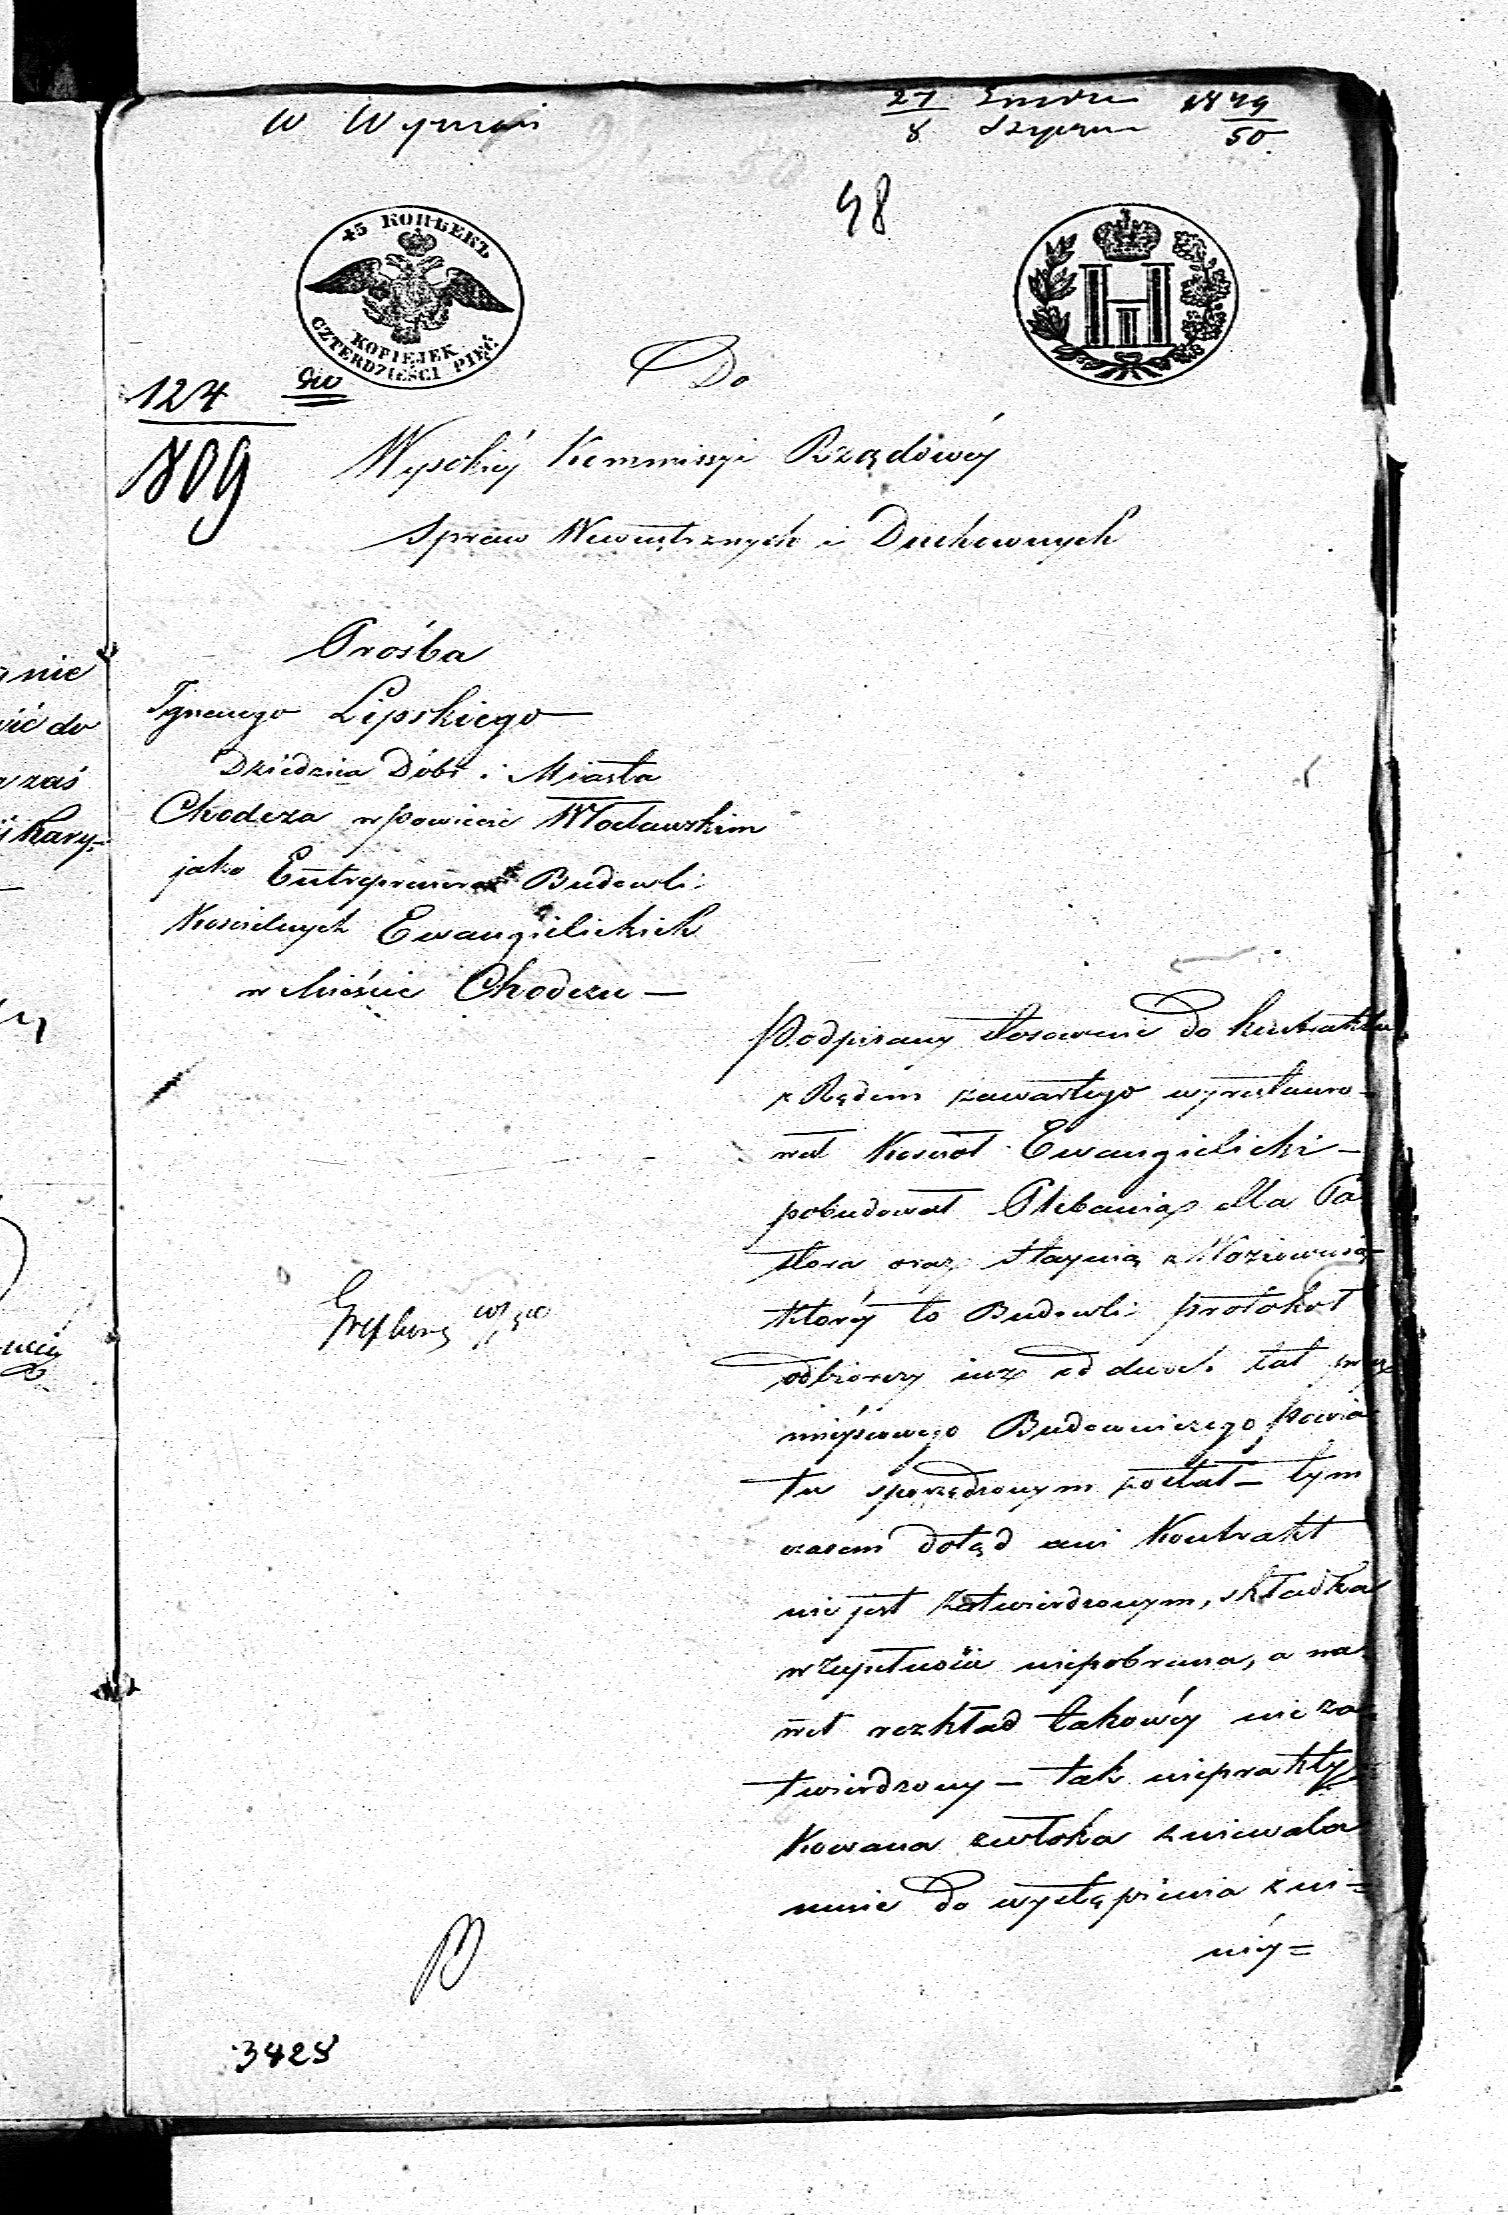 W
27 Grudnia 1849
8 Stycznia 50
48
45 КОПѢЕКЪ
KOPIEJEK
CZTERDZIEŚCI PIĘĆ
Do
124
809
Wysokiéj Kommissyi Rządowéj
Spraw Wewnętrznych i Duchownych
Prośba
Ignacego Lipskiego
Dziedzica Dóbr i Miasta
Chodcza w Powiecie Włocławskim
jako Entreprenera Budowli
Kościelnych Ewangielickich
w Mieście Chodczu —
nie
do
zaś
kary
Podpisany stosownie do kontraktu
z Rządem zawartego wyrestauro-
wał Kościół Ewangielicki —
pobudował Plebanią dla Pa
stora oraz stajnią z Wozownią
któréj to Budowli protokół
odbiorczy iuż od dwóch lat przez
miéjscowego Budowniczego Powia
tu sporządzonym został — tym
czasem dotąd ani Kontrakt
nie jest zatwierdzonym, składka
w zupełności niepobrana, a na
wet rozkład takowéj nie za-
twierdzony — tak nieprakty
kowana zwłoka zniewala
mnie do wystąpienia z ni-
niéj=
3428